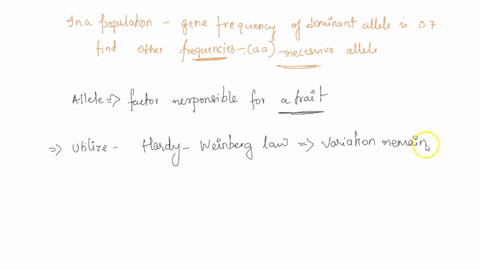 In a population - gene frequency of dominant allele is 0.7.
find other frequencies - (aa) - recessive allele.
Allele => factor responsible for a trait
=> Utilize - Hardy - Weinberg law => variation remain